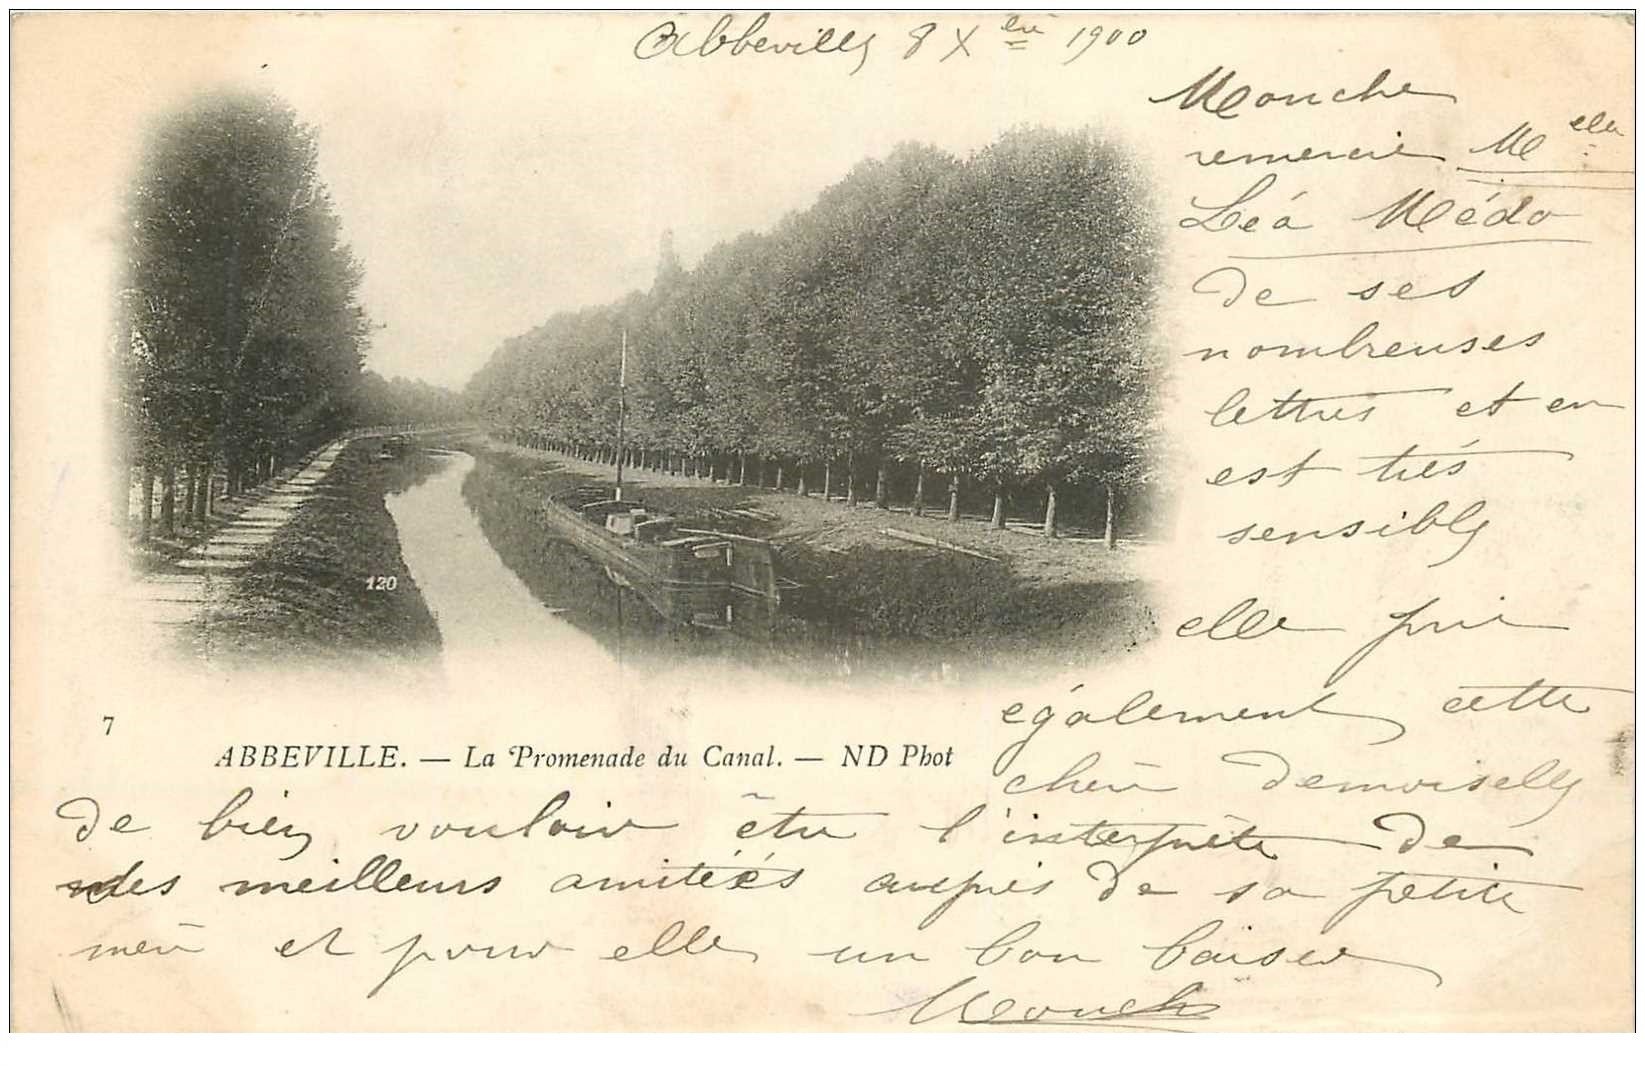 Abbeville 8 Xbre 1900
Mouche
remercie Melle
Léa Médo
de ses
nombreuses
lettres et en
est très
sensible
elle prie
également cette
chère demoiselle
120
7
ABBEVILLE. — La Promenade du Canal. — ND Phot
de bien vouloir être l'interprète de
des meilleurs amitiés auprès de sa petite
mère et pour elle un bon baiser
Mouche